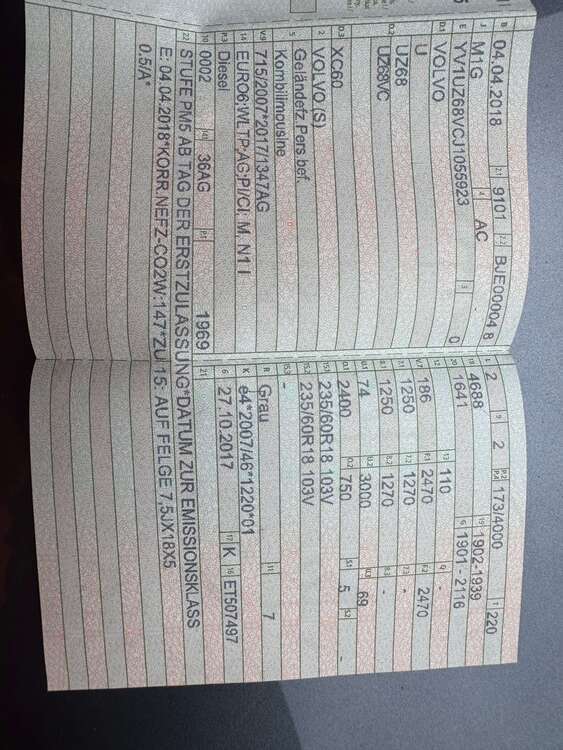 B 04.04.2018 2.1 9101 2.2 BJE00004 8
J M1G 4 AC
E YV1UZ68VCJ1055923 3 0
D.1 VOLVO
D.2 U
UZ68
UZ68VC
D.3 XC60
2 VOLVO (S)
5 Geländefz.Pers.bef.
Kombilimousine
V.9 715/2007*2017/1347AG
14 EURO6;WLTP;AG;PI/CI; M, N1 I
P.3 Diesel
10 0002 14.1 36AG P.1 1969
22 STUFE PM5 AB TAG DER ERSTZULASSUNG*DATUM ZUR EMISSIONSKLASS
E: 04.04.2018*KORR.NEFZ-CO2W:147*ZU 15: AUF FELGE 7,5JX18X5
0,5/A*
L 2 9 2 P.2 P.4 173/4000 T 220
18 4688 19 1902-1939
20 1641 G 1901 - 2116
12 - 13 110 Q -
V.7 186 F.1 2470 F.2 2470
7.1 1250 7.2 1270 7.3 -
8.1 1250 8.2 1270 8.3 -
U.1 74 U.2 3000 U.3 69
O.1 2400 O.2 750 S.1 5 S.2 -
15.1 235/60R18 103V
15.2 235/60R18 103V
15.3 -
R Grau 11 7
K e4*2007/46*1220*01
6 27.10.2017 17 K 16 ET507497
21